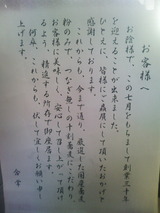 お客様へ
お陰様で、この七月をもちまして創業三十年
を迎えることが出来ました。
ひとえに、皆様にご贔屓にして頂いたおかげと
感謝しております。
これからも、今まで通り、厳選した国産蕎麦
粉のみで、つなぎ無しの十割蕎麦にこだわって
お客様に美味しく、安心して召し上がって頂け
るよう、精進する所存で御座居ます。
何卒、これからも、伏してお願い申し
上げます。